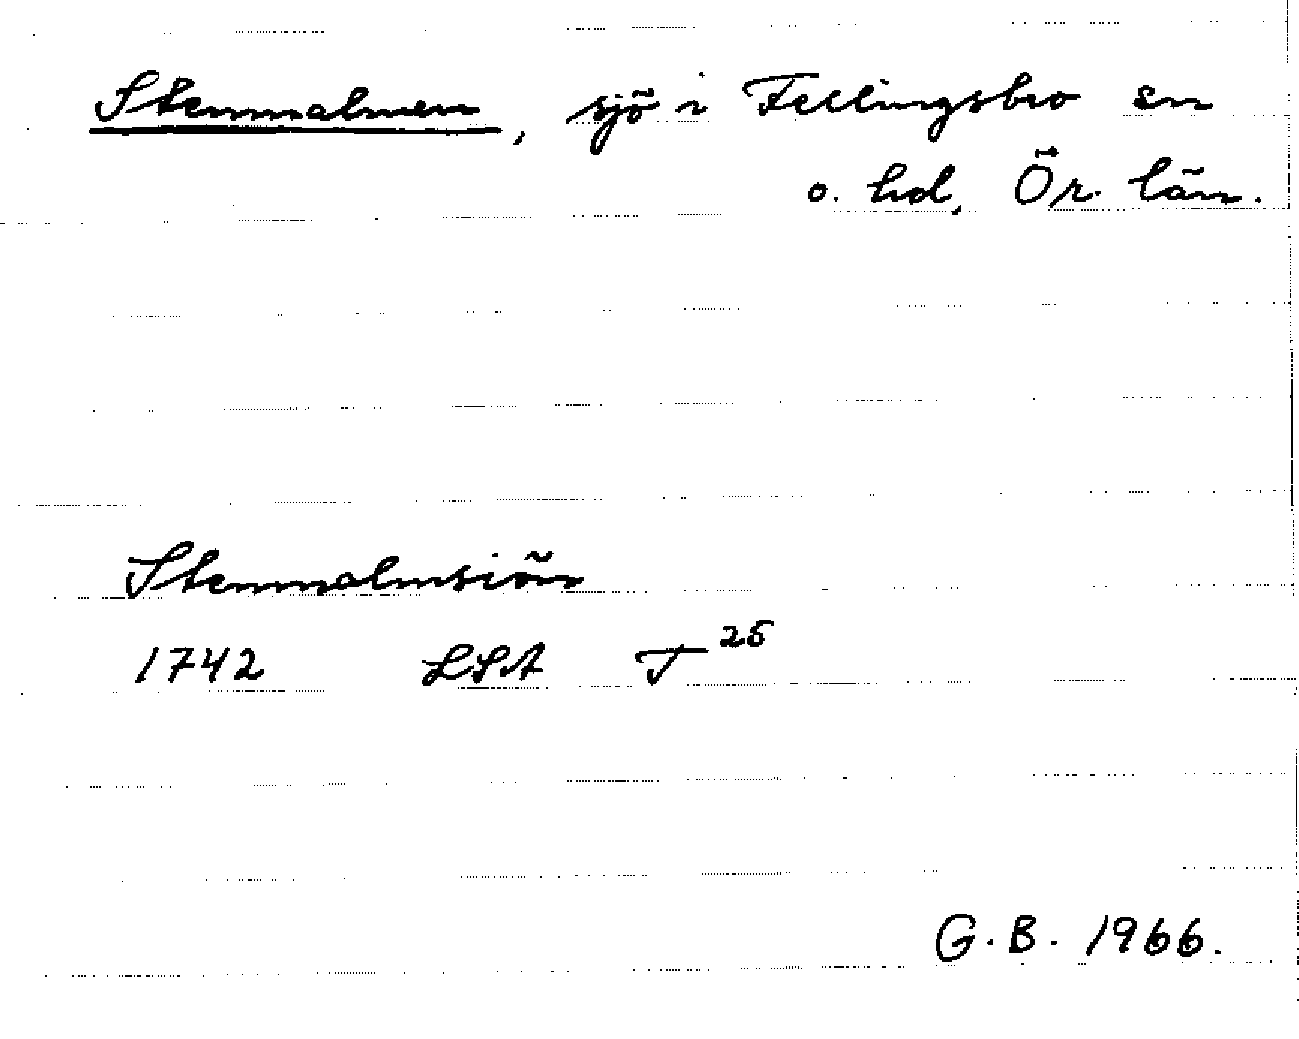 Stenmalmen, sjö i Fellingsbro sn
o. hd, Ör. län.
Stenmalmsiön
1742 LSA T 25
G. B. 1966.